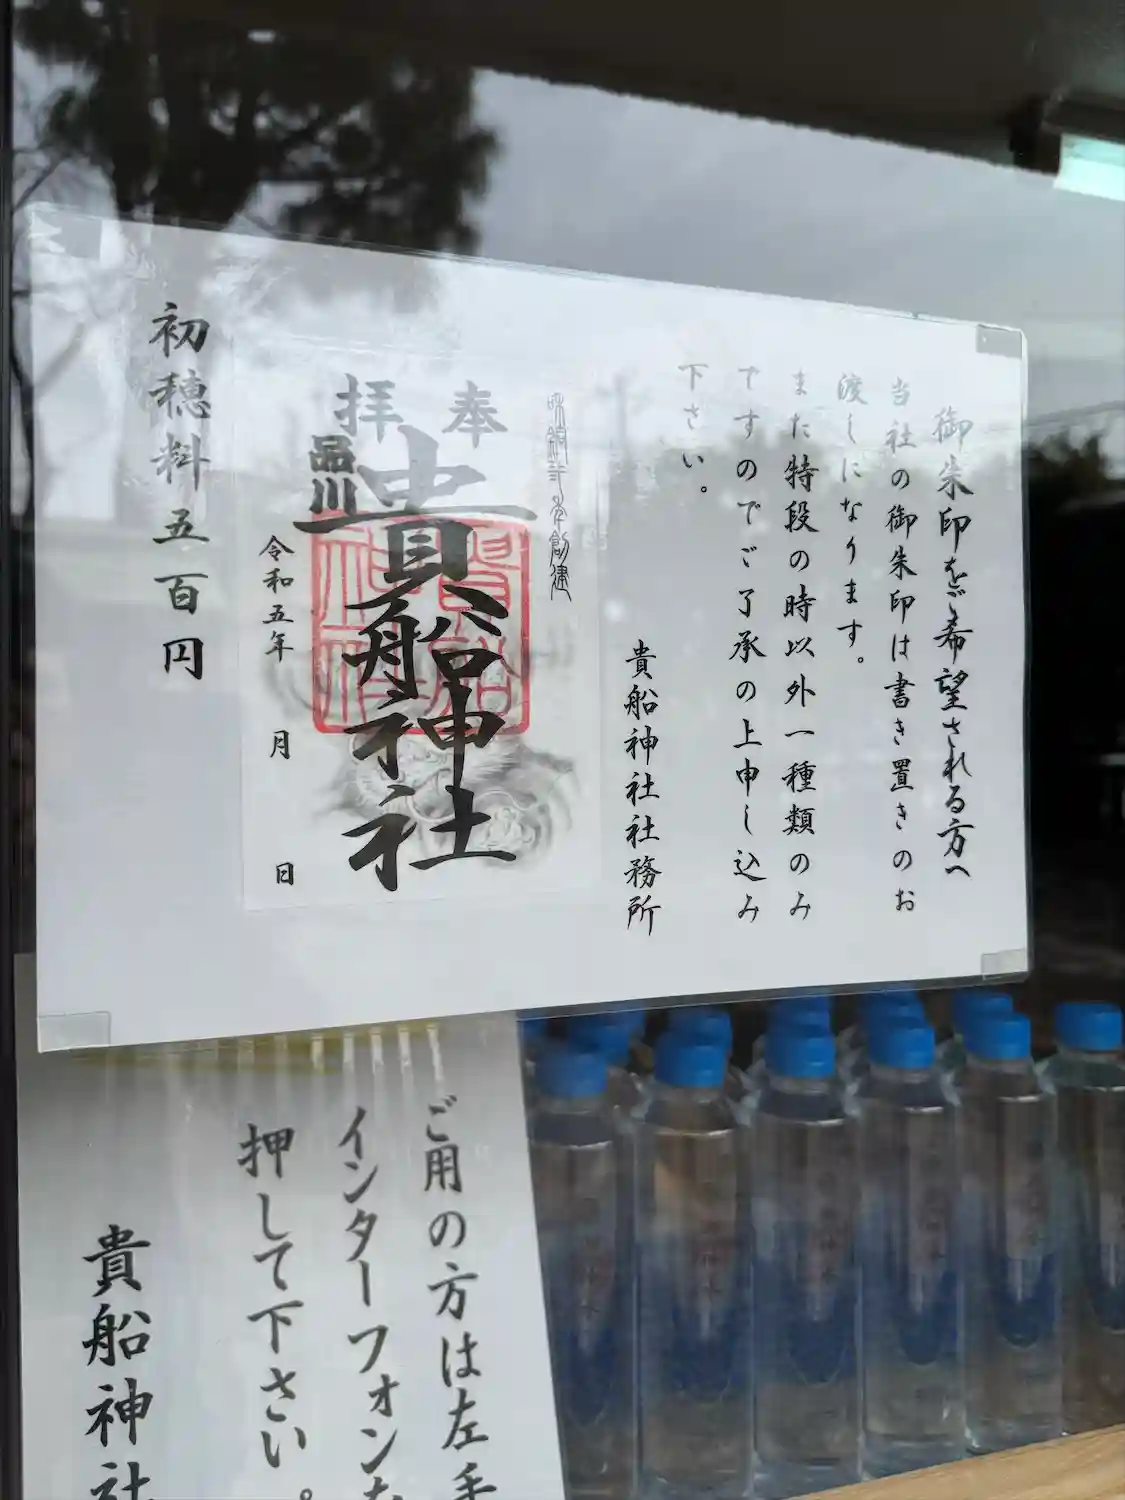 御朱印をご希望される方へ
当社の御朱印は書き置きのお
渡しになります。
また特段の時以外一種類のみ
ですのでご了承の上申し込み
下さい。
貴船神社社務所
創建
奉拝
品川
貴船神社
令和五年 月 日
初穂料五百円
ご用の方は左手
インターフォンを
押して下さい。
貴船神社